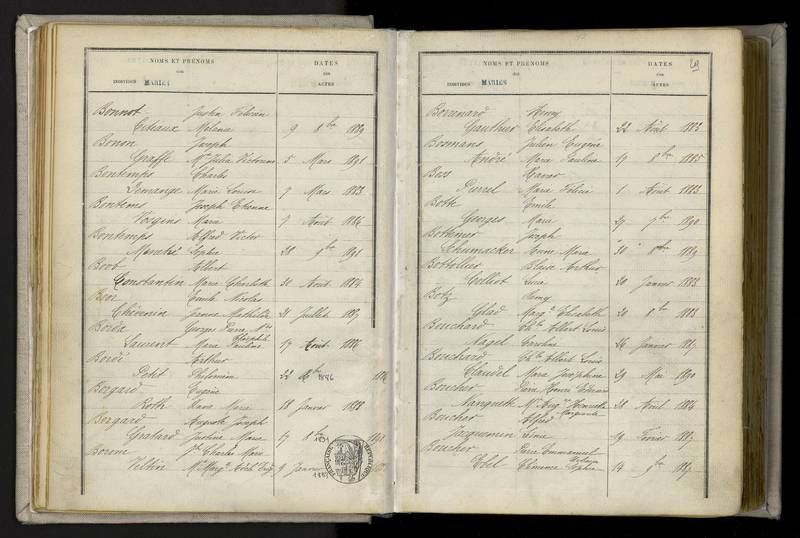 NOMS ET PRÉNOMS
DES
INDIVIDUS MARIÉS
DATES
DES
ACTES
Bonnot Justin
Citeaux Mélina 9 8bre 1889
Bonon Joseph
Graffe Mie Julie Victorine 5 Mars 1891
Bontemps Charles
Demange Marie Louise 7 Mars 1883
Bontems Joseph Etienne
Voegins Marie 7 Août 1886
Bontemps Alfred Victor
Sophie 28 9bre 1891
Boot Albert
Constantin Marie Charlotte 30 Août 1884
Emile Nicolas
Chévenin Jeanne Mathilde 24 Juillet 1887
Borda Georges Pierre Nas
Laurent Marie Pauline 17 Août 1886
Bordé Arthur
Petit Philomène 22 1886
Borgard Eugène
Roth Anne Marie 18 Janvier 1888
Borgard Auguste Joseph
Gratard Justine Marie 17 8bre
Borem Charles Marie
Veltin 9 Janvier 1889
RÉPUBLIQUE FRANÇAISE
NOMS ET PRÉNOMS
DES
INDIVIDUS MARIÉS
DATES
DES
ACTES
29
Henry
Gauthier Elisabeth 22 Août 1883
Bosmans Julien Eugène
André Marie Pauline 17 8bre 1885
Bass Xavier
Pierrel Marie Félicie 1 Août 1883
Both Emile
Georges Marie 29 7bre 1890
Bothner Joseph
Schumacker Anne Marie 30 8bre 1889
Bottollier Blaise Arthur
Lucie 20 Janvier 1883
Botz Remy
Glad Marg. Elisabeth 20 8bre 1888
Bouchard Chles Albert Louis
Nagel Caroline 26 Janvier 1887
Bouchard Chles Albert Louis
Claudel Marie Joséphine 29 Mai 1890
Boucher Pierre Henri
Mangueth Mie Aug. Henriette Marguerite 28 Avril 1884
Boucher Alfred
Jacquemin Léonie 19 Février 1887
Boucher Pierre Emmanuel
Ebel Clémence Sophie 14 9bre 1887